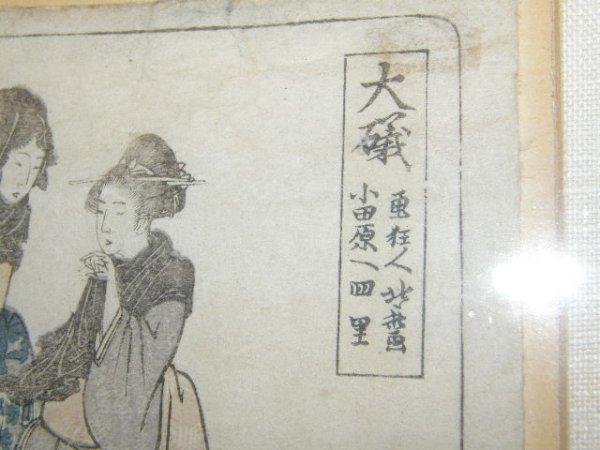 大礒
画狂人北斎
小田原へ四里